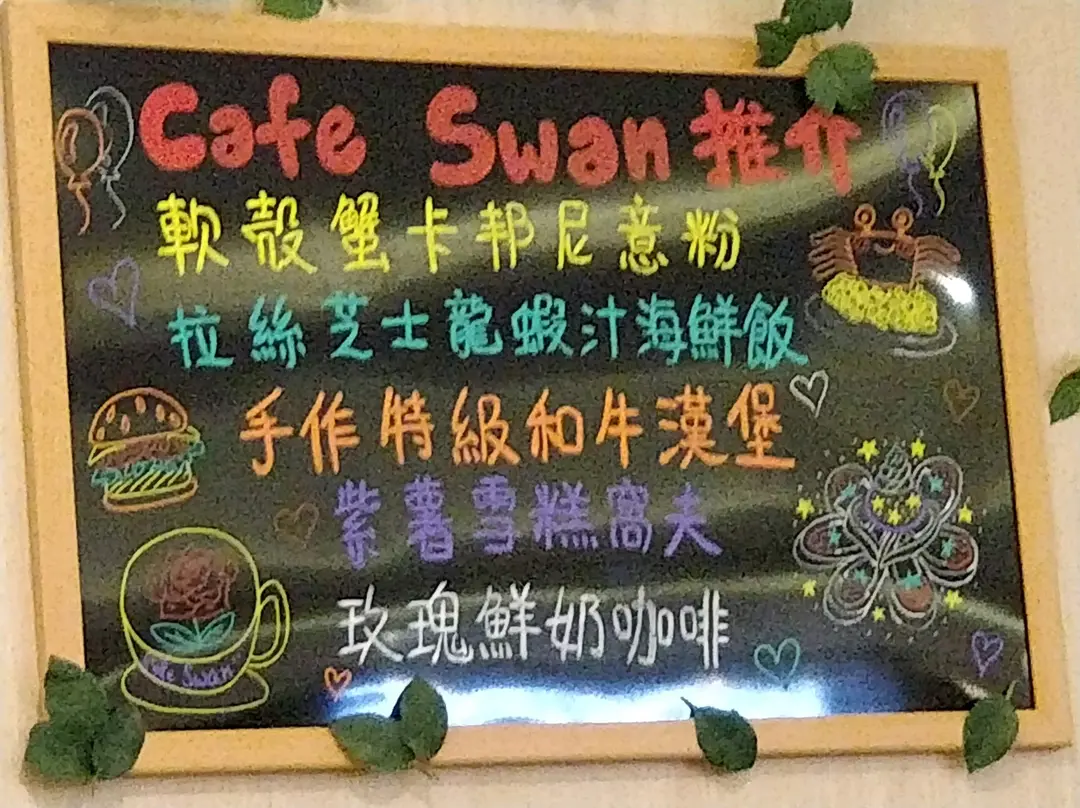 Cafe Swan 推介
軟殼蟹卡邦尼意粉
拉絲芝士龍蝦汁海鮮飯
手作特級和牛漢堡
紫薯雪糕窩夫
玫瑰鮮奶咖啡
Cafe Swan